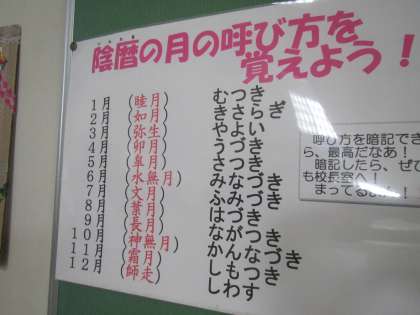 陰暦の月の呼び方を
覚えよう!
1月 (睦月) むつき
2月 (如月) きさらぎ
3月 (弥生) やよい
4月 (卯月) うづき
5月 (皐月) さつき
6月 (水無月) みなづき
7月 (文月) ふみづき
8月 (葉月) はづき
9月 (長月) ながつき
10月 (神無月) かんなづき
11月 (霜月) しもつき
12月 (師走) しわす
呼び方を暗記でき
ら、最高だなあ!
暗記したら、ぜひ
も校長室へ!
まってるよん!